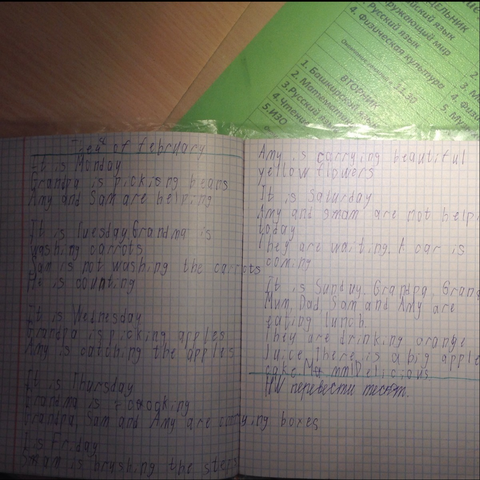 НЕДЕЛЬНИК
ийский язык
кружающий мир
Русский язык
4. Физическая культура
Окончание занятий - 11.50
ВТОРНИК
1. Башкирский
2. Математ
3. Русский
4. Чтени
5. ИЗО
of february
It is Monday
Grandpa is picking beans
Amy and Sam are helping
It is Tuesday. Grandma is
washing carrots
Sam is not washing the carrots
He is counting
It is Wednesday
Grandpa is picking apples
Amy is catching the apples
It is Thursday
Grandma is cooking
Grandpa, Sam and Amy are carrying boxes
Is Friday
is brushing the steps
Amy is carrying beautiful
yellow flowers
It is Saturday
Amy and smam are not help
today
They are waiting. A car is
coming
It is Sunday. Grandpa, Grand
Mum, Dad, Sam and Amy are
eating lunch
They are drinking orange
juice. There is a big apple
cake. Delicious.
HW перевести текст.